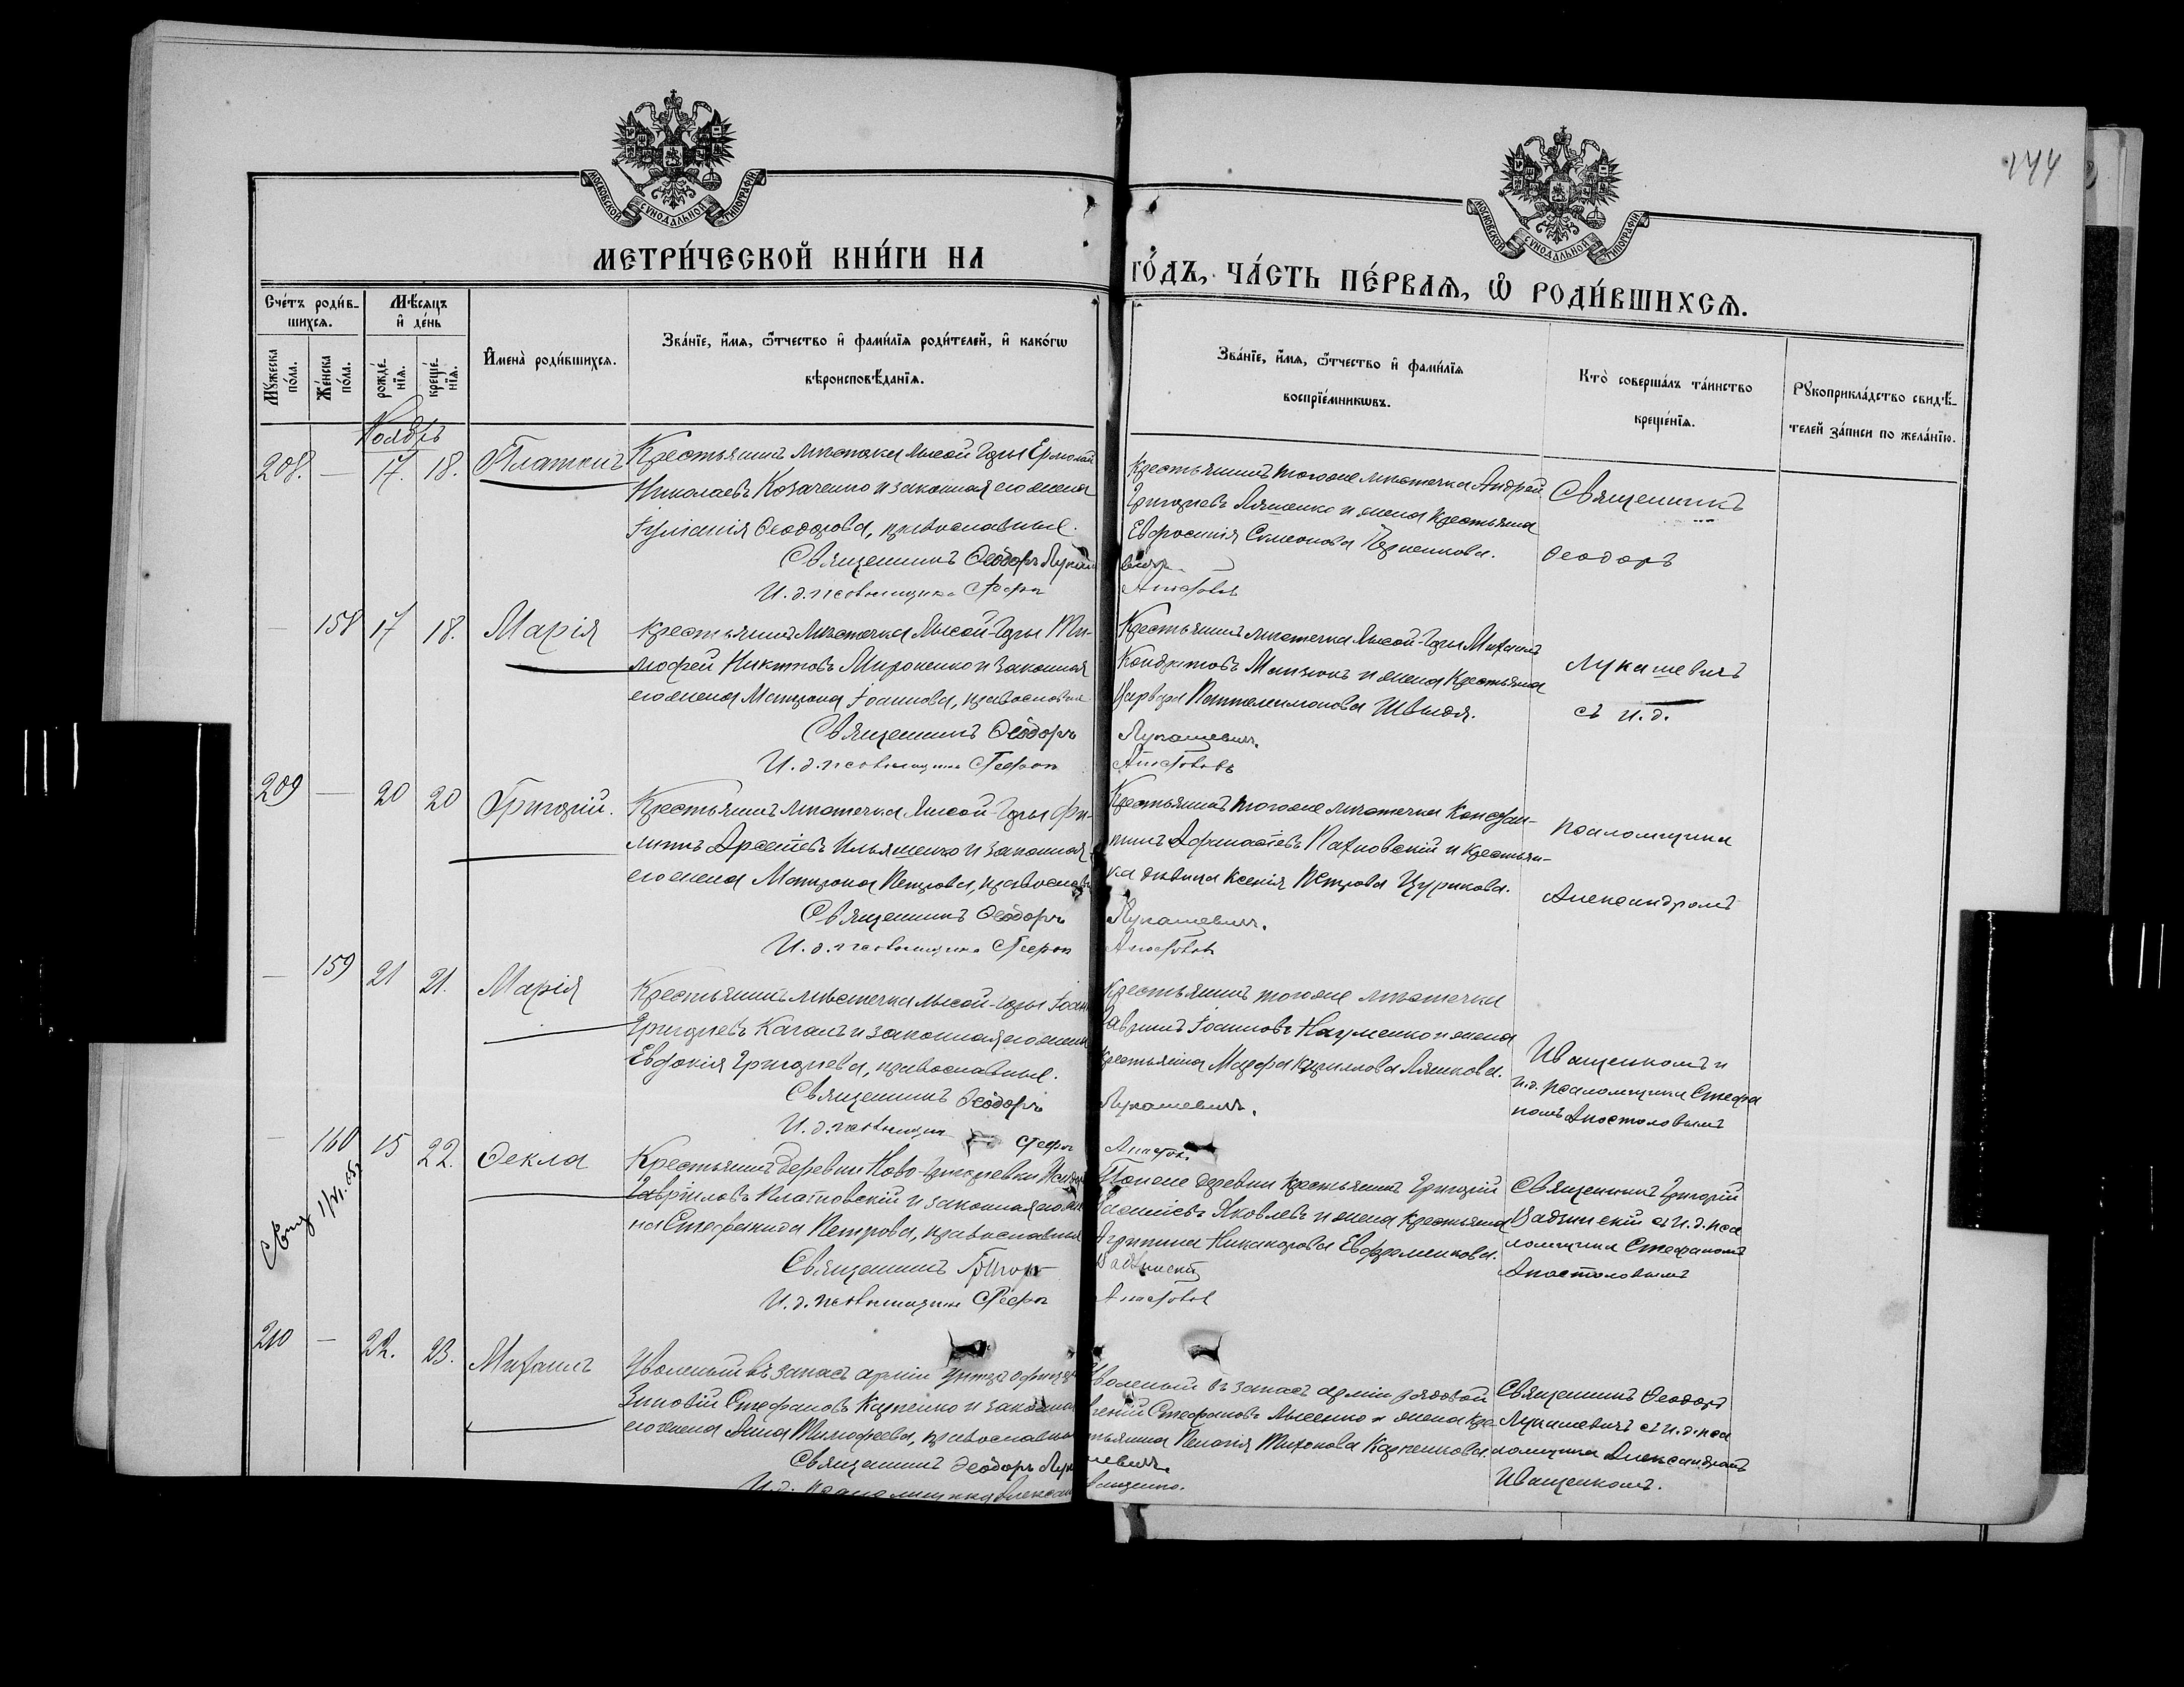 144
МОСКОВСКОЙ СѴНОДАЛЬНОЙ ТИПОГРАФІИ
МОСКОВСКОЙ СѴНОДАЛЬНОЙ ТИПОГРАФІИ
МЕТРИ́ЧЕСКОЙ КНИ́ГИ НА
ГО́ДЪ, ЧА́СТЬ ПЕ́РВАЯ, Ѽ РОДИ́ВШИХСѦ.
Сче́тъ роди́в-
шихсѧ.
Мꙋ́жеска по́ла.
Же́нска по́ла.
Мѣ́сѧцъ
и҆ де́нь
рожде́-
нїѧ.
креще́-
нїѧ.
И҆мена̀ роди́вшихсѧ.
Зва́нїе, и҆́мѧ, ѻ҆́тчество и҆ фами́лїѧ роди́телей, и҆ како́гѡ
вѣроисповѣ́данїѧ.
Зва́нїе, и҆́мѧ, ѻ҆́тчество и҆ фами́лїѧ
воспрїе́мникѡвъ.
Кто̀ соверша́лъ та́инство
креще́нїѧ.
Рꙋкоприкла́дство свидѣ́-
телей за́писи по жела́нїю.
Ноябрь
208. — 17. 18. Платонъ
Крестьянинъ мѣстечка Лысой Горы Ермолай
Николаевъ Козаченко и законная его жена
Іуліанія Ѳеодорова, православные.
Священникъ Ѳеодоръ Лукаше
вичъ.
И. д. псаломщика Стефан
Апостоловъ
Крестьянинъ тогоже мѣстечка Андрей
Григорьевъ Ляшенко и жена крестьяна
Евфросинія Симеонова
Священникъ
Ѳеодоръ
— 158 17 18. Марія
Крестьянинъ мѣстечка Лысой-Горы Ти-
мофей Никитовъ Мироненко и законная
его жена Матрона Іоаннова, православные
Священникъ Ѳеодоръ Лукашевичъ.
И. д. псаломщика Стефан Апостоловъ
Крестьянинъ мѣстечка Лысой-Горы Михаилъ
Кондратовъ и жена крестьяна
Варвара Пантелеимонова Швыдя.
Лукашевичъ
съ и. д.
209 — 20 20 Григорій.
Крестьянинъ мѣстечка Лысой-Горы Фи-
липпъ Арсеніевъ Ильяшенко и законная
его жена Матрона Петрова, православ
Священникъ Ѳеодоръ Лукашевичъ.
И. д. псаломщика Стефан Апостоловъ
Крестьянинъ тогоже мѣстечка Констан-
тинъ Афанасіевъ Пахновскій и крестьян-
ка дѣвица Ксенія Петрова Цурикова.
псаломщика
Александромъ
— 159 21 21. Марія
Крестьянинъ мѣстечка Лысой-Горы Іоанн
Григорьевъ Каганъ и законная его жена
Евдокія Григорьева, православные.
Священникъ Ѳеодоръ Лукашевичъ.
И. д. псаломщика Стефан Апостол.
Крестьянинъ тогоже мѣстечка
Гавріилъ Іоанновъ Науменко и жена
крестьянина Марфа Кириллова Ляшкова.
Иващенкомъ и
и. д. псаломщика Стефа
номъ Апостоловымъ
— 160 15 22. Ѳекла
Крестьянинъ деревни Ново-Григорьевки
Гавріиловъ Платновскій и законная его же
на Стефанида Петрова, православные
Священникъ Григор
И. д. псаломщика Стефан Апостолов
Тойже деревни крестьянинъ Григорій
Василіевъ Яковлевъ и жена крестьяна
Агрипина Никанорова Ефременкова.
Священникъ Григорій
съ и. д. пса
ломщика Стефаномъ
Апостоловымъ
210 — 22. 23. Михаилъ
Уволенный въ запасъ арміи унтеръ офицеръ
Зиновій Стефановъ Карпенко и законная
его жена Анна Тимофеева, православные
Священникъ Ѳеодоръ Лукашевичъ.
И. д. псаломщика Александръ Иващенко.
Уволенный въ запасъ арміи рядовой
Стефановъ Лысенко и жена кре-
стьянина Пелагія Тихонова Карпенкова.
Священникъ Ѳеодоръ
Лукашевичъ съ и. д. пса
ломщика Александромъ
Иващенкомъ.